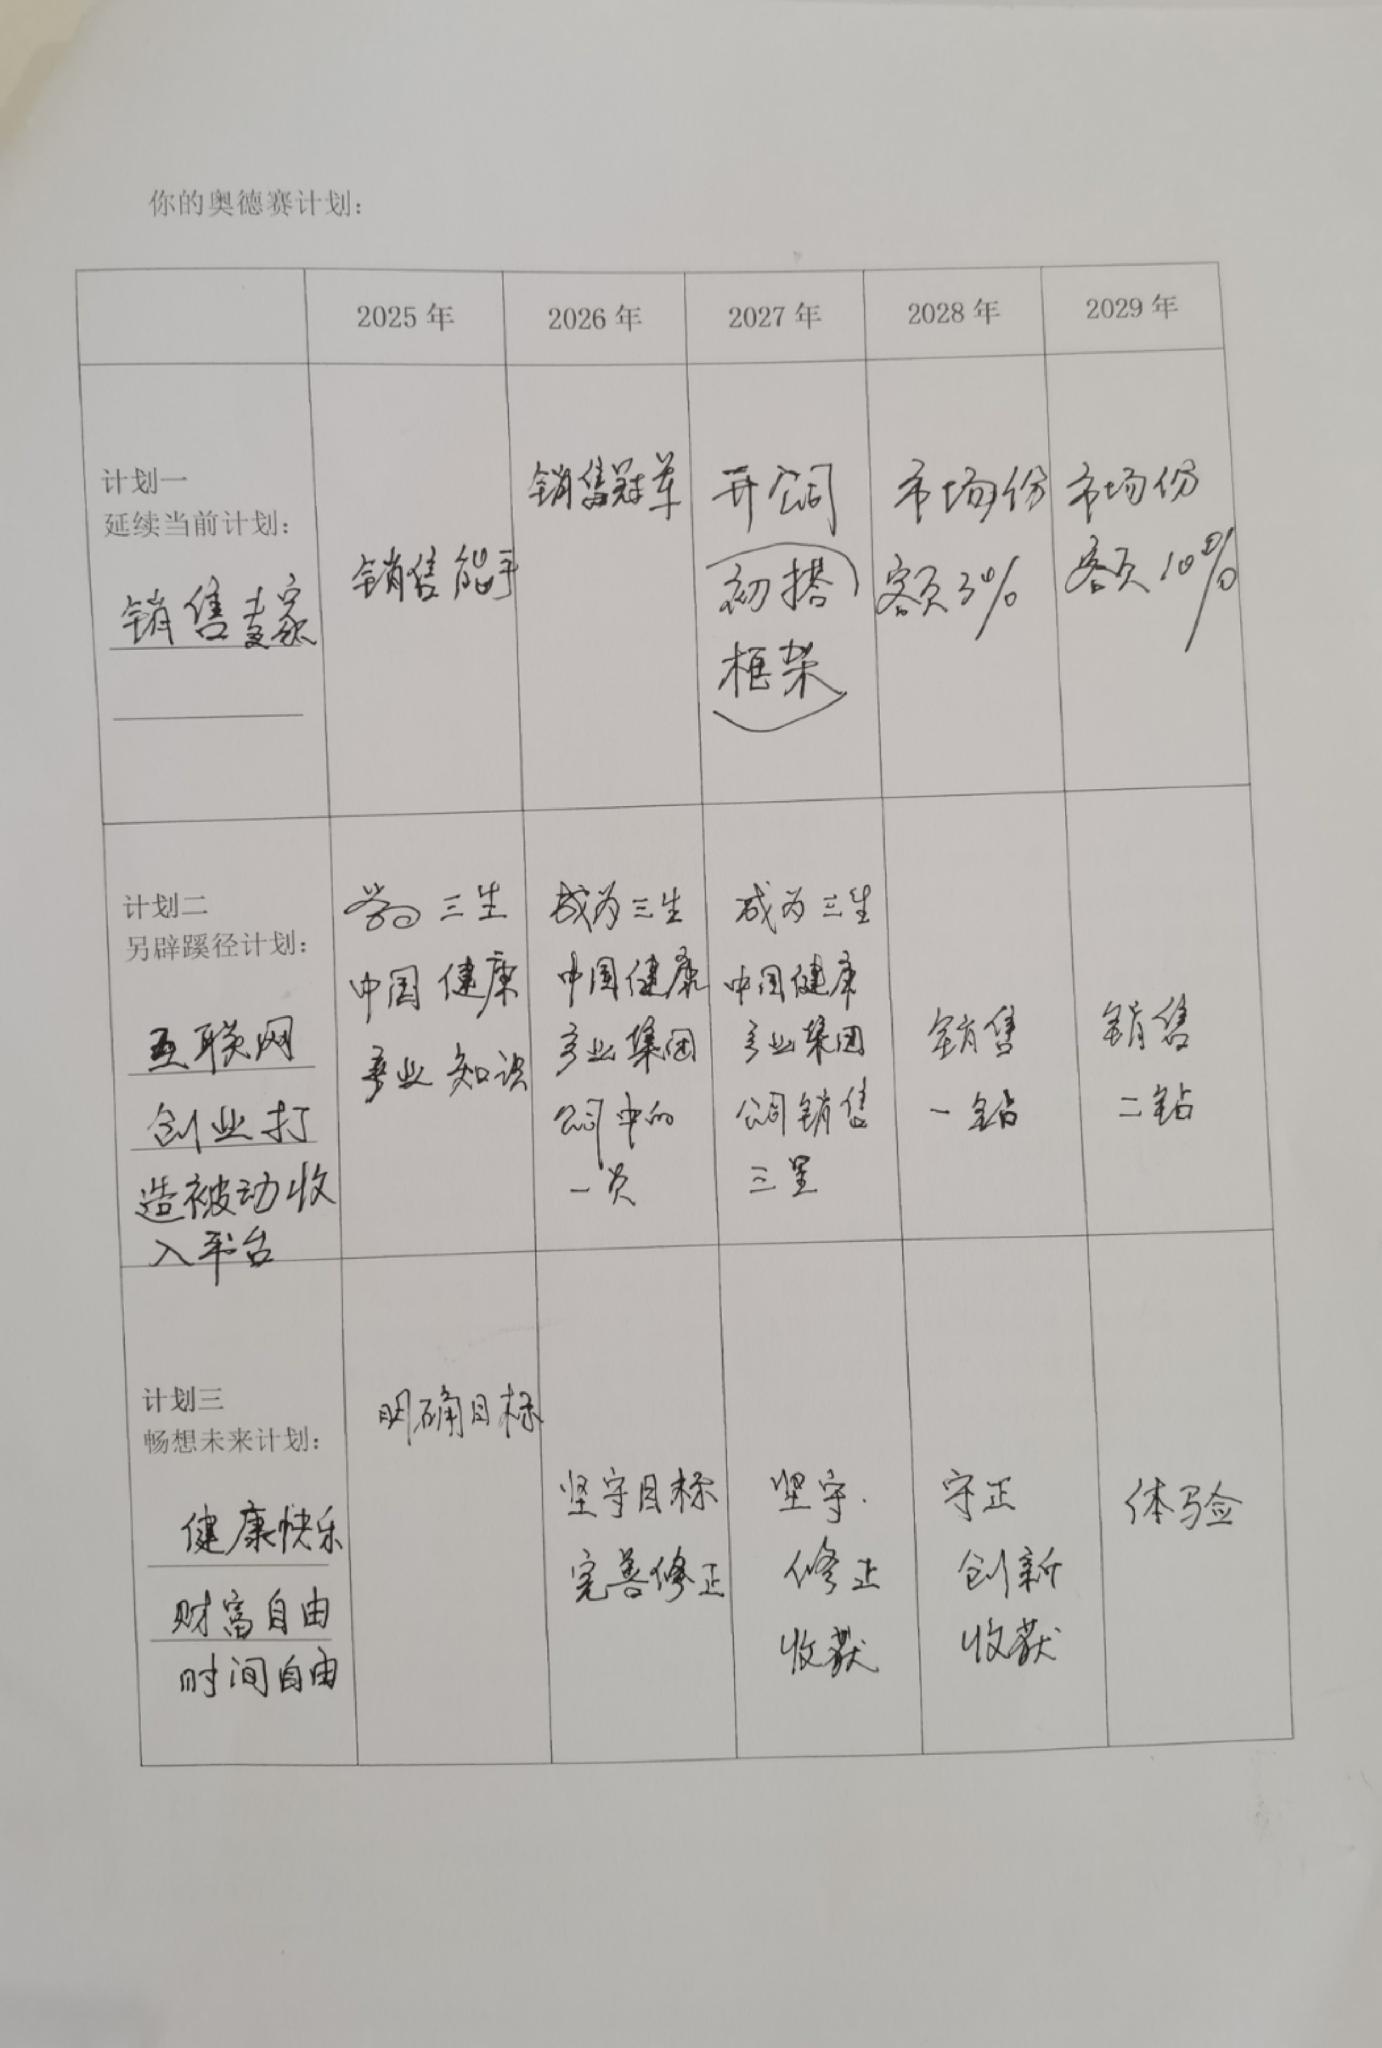 你的奥德赛计划：
2025年
2026年
2027年
2028年
2029年
计划一
延续当前计划：
销售专家
销售能手
销售冠军
开公司
（初搭
框架）
市场份
额3%
市场份
额10%
计划二
另辟蹊径计划：
互联网
创业打
造被动收
入平台
学习三生
中国健康
产业知识
成为三生
中国健康
产业集团
公司中的
一员
成为三生
中国健康
产业集团
公司销售
三星
销售
一钻
销售
二钻
计划三
畅想未来计划：
健康快乐
财富自由
时间自由
明确目标
坚守目标
完善修正
坚守.
修正
收获
守正
创新
收获
体验